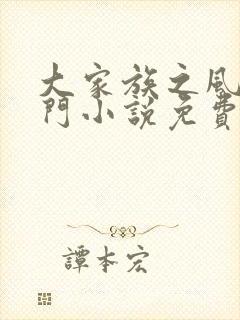 大家族之風
門小說免費
譚本宏